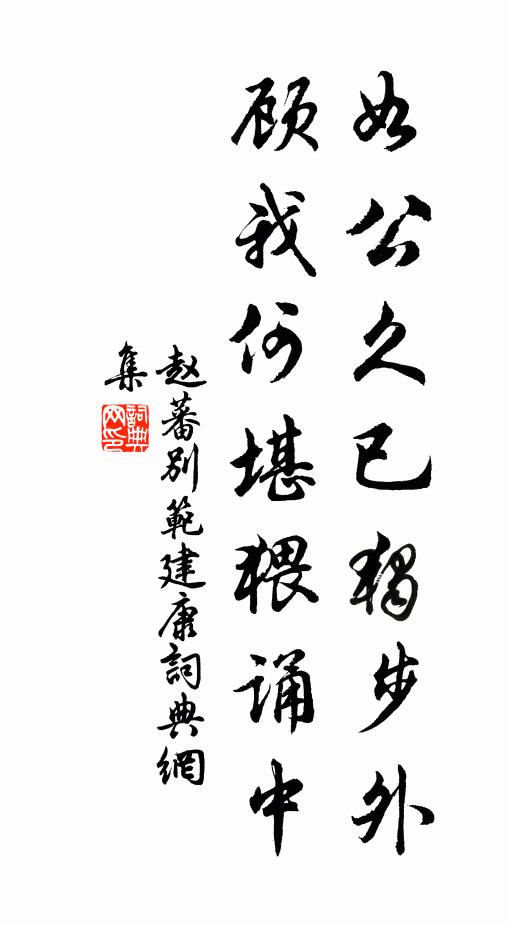 如公久已獨步外
顾我何堪猥诵中
赵蕃别範建康詞典網
集
詞典
网印